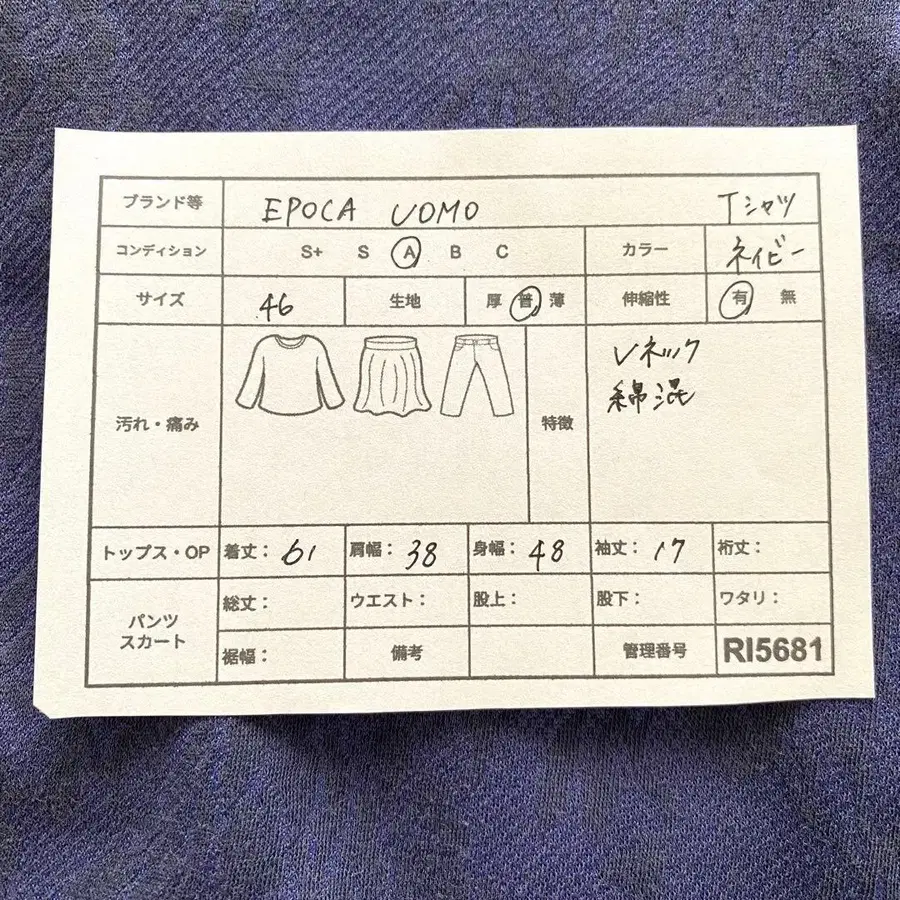 ブランド等 EPOCA UOMO Tシャツ
コンディション S+ S A B C カラー ネイビー
サイズ 46 生地 厚 普 薄 伸縮性 有 無
汚れ・痛み 特徴 Vネック
綿混
トップス・OP 着丈: 61 肩幅: 38 身幅: 48 袖丈: 17 裄丈:
パンツ
スカート
総丈: ウエスト: 股上: 股下: ワタリ:
裾幅: 備考 管理番号 RI5681